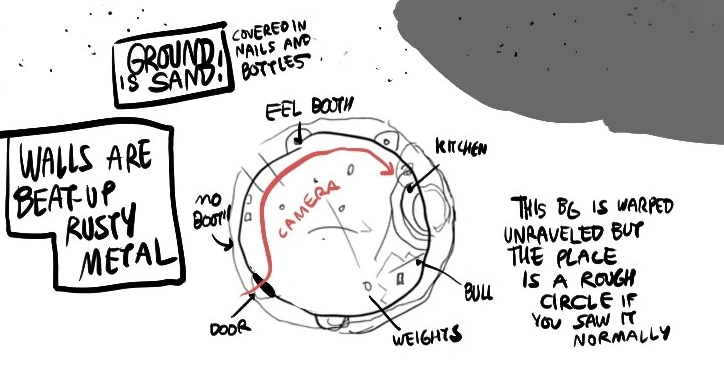 GROUND
IS SAND!
COVERED IN
NAILS AND
BOTTLES
EEL BOOTH
KITCHEN
WALLS ARE
BEAT-UP
RUSTY
METAL
NO
BOOTH
CAMERA
THIS BG IS WARPED
UNRAVELED BUT
THE PLACE
IS A ROUGH
CIRCLE IF
YOU SAW IT
NORMALLY
BULL
DOOR
WEIGHTS